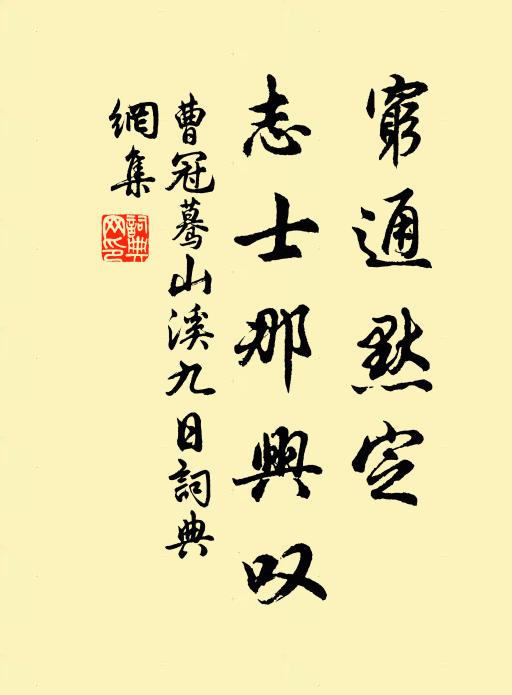 窮通默定
志士那興叹
曹冠蓦山溪九日詞典
網集
詞典網印